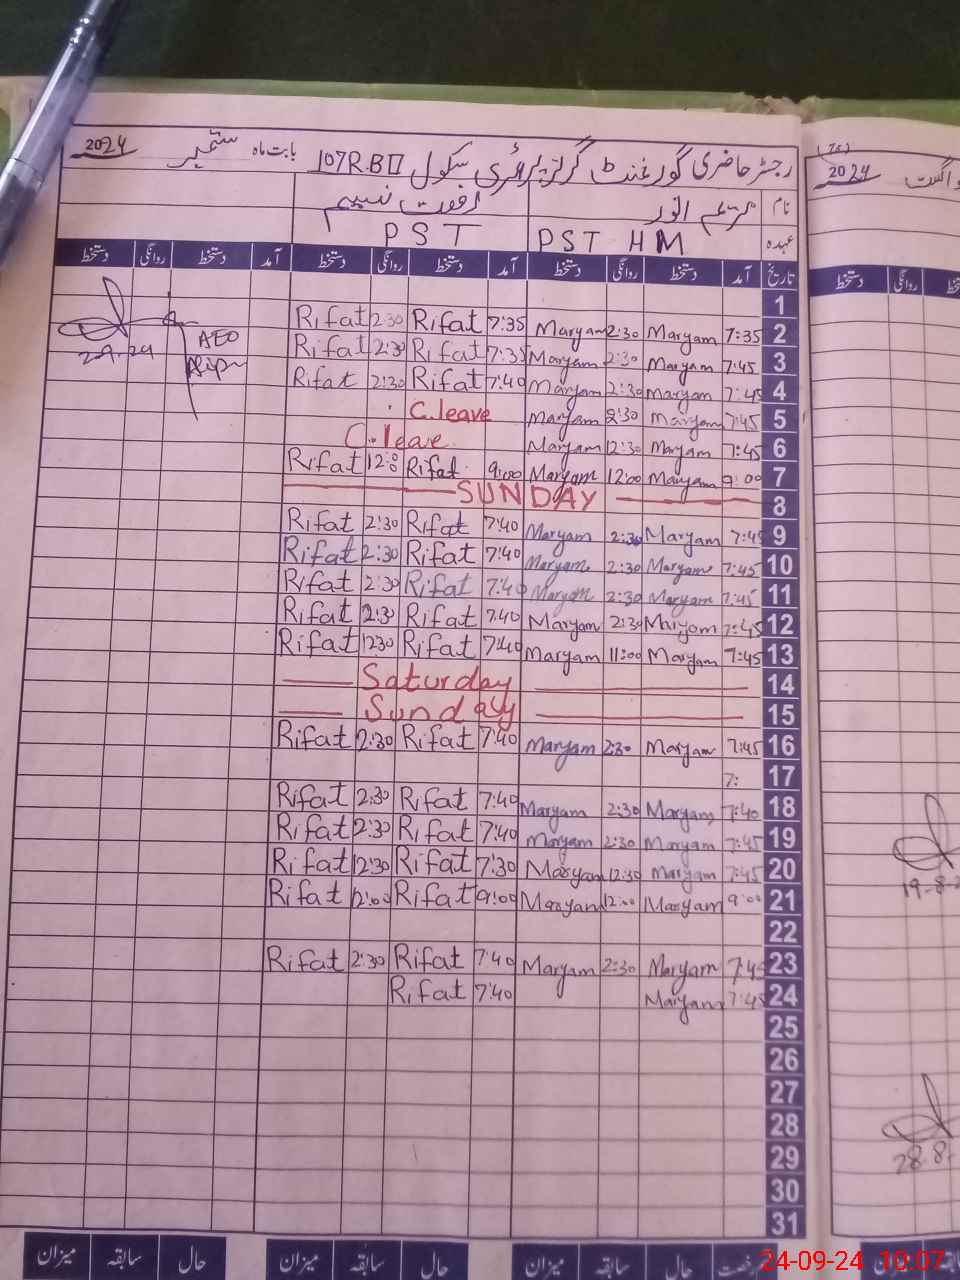 رجسٹر حاضری گورنمنٹ گرلز پرائمری سکول 107 R.B II بابت ماہ ستمبر 2024
نام مریم انور رفعت نسیم
عہدہ PST HM PST
تاریخ آمد دستخط روانگی دستخط آمد دستخط روانگی دستخط آمد دستخط روانگی دستخط
1
Rifat 2:30 Rifat 7:35 Maryam 2:30 Maryam 7:35 2
Rifat 2:30 Rifat 7:35 Maryam 2:30 Maryam 7:45 3
Rifat 2:30 Rifat 7:40 Maryam 2:30 Maryam 7:45 4
C.leave Maryam 2:30 Maryam 7:45 5
C.leave Maryam 12:30 Maryam 7:45 6
Rifat 12:00 Rifat 9:00 Maryam 12:00 Maryam 9:00 7
SUNDAY 8
Rifat 2:30 Rifat 7:40 Maryam 2:30 Maryam 7:45 9
Rifat 2:30 Rifat 7:40 Maryam 2:30 Maryam 7:45 10
Rifat 2:30 Rifat 7:40 Maryam 2:30 Maryam 7:45 11
Rifat 2:30 Rifat 7:40 Maryam 2:30 Maryam 7:45 12
Rifat 1230 Rifat 7:40 Maryam 11:00 Maryam 7:45 13
Saturday 14
Sunday 15
Rifat 2:30 Rifat 7:40 Maryam 2:30 Maryam 7:45 16
7: 17
Rifat 2:30 Rifat 7:40 Maryam 2:30 Maryam 7:40 18
Rifat 2:30 Rifat 7:40 Maryam 2:30 Maryam 7:45 19
Rifat 12:30 Rifat 7:30 Maryam 12:30 Maryam 7:45 20
Rifat 12:00 Rifat 9:00 Maryam 12:00 Maryam 9:00 21
22
Rifat 2:30 Rifat 7:40 Maryam 2:30 Maryam 7:45 23
Rifat 7:40 Maryam 7:45 24
25
26
27
28
29
30
31
AEO
حال سابقہ میزان حال سابقہ میزان
2024
دستخط روانگی
19-8-2
28.8.
24-09-24 10:07